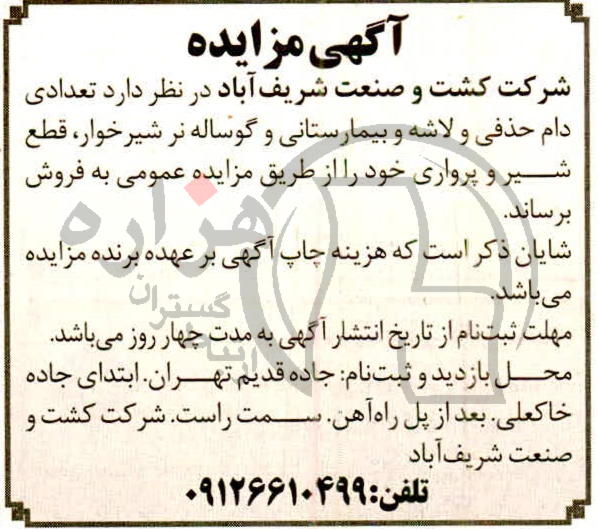 آگهی مزایده
شرکت کشت و صنعت شریف‌آباد در نظر دارد تعدادی
دام حذفی و لاشه و بیمارستانی و گوساله نر شیرخوار، قطع
شیر و پرواری خود را از طریق مزایده عمومی به فروش
برساند.
شایان ذکر است که هزینه چاپ آگهی بر عهده برنده مزایده
می‌باشد.
مهلت ثبت‌نام از تاریخ انتشار آگهی به مدت چهار روز می‌باشد.
محل بازدید و ثبت‌نام: جاده قدیم تهران. ابتدای جاده
خاکعلی. بعد از پل راه‌آهن. سمت راست. شرکت کشت و
صنعت شریف‌آباد
تلفن: ۰۹۱۲۶۶۱۰۴۹۹
هزاره
گستران